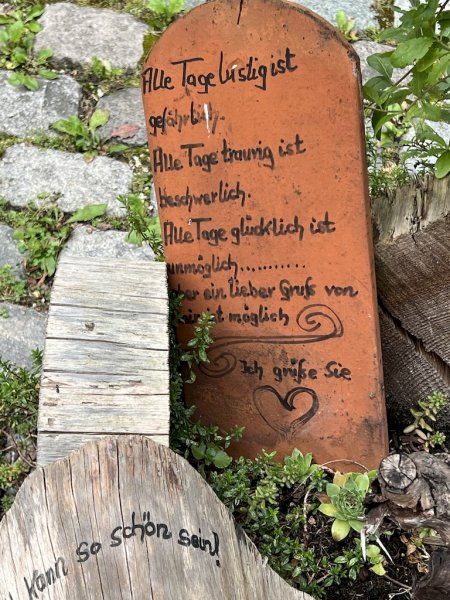 Alle Tage lustig ist
gefährlich.
Alle Tage traurig ist
beschwerlich.
Alle Tage glücklich ist
unmöglich..........
ein lieber Gruß von
ist möglich
Ich grüße Sie
kann so schön sein!